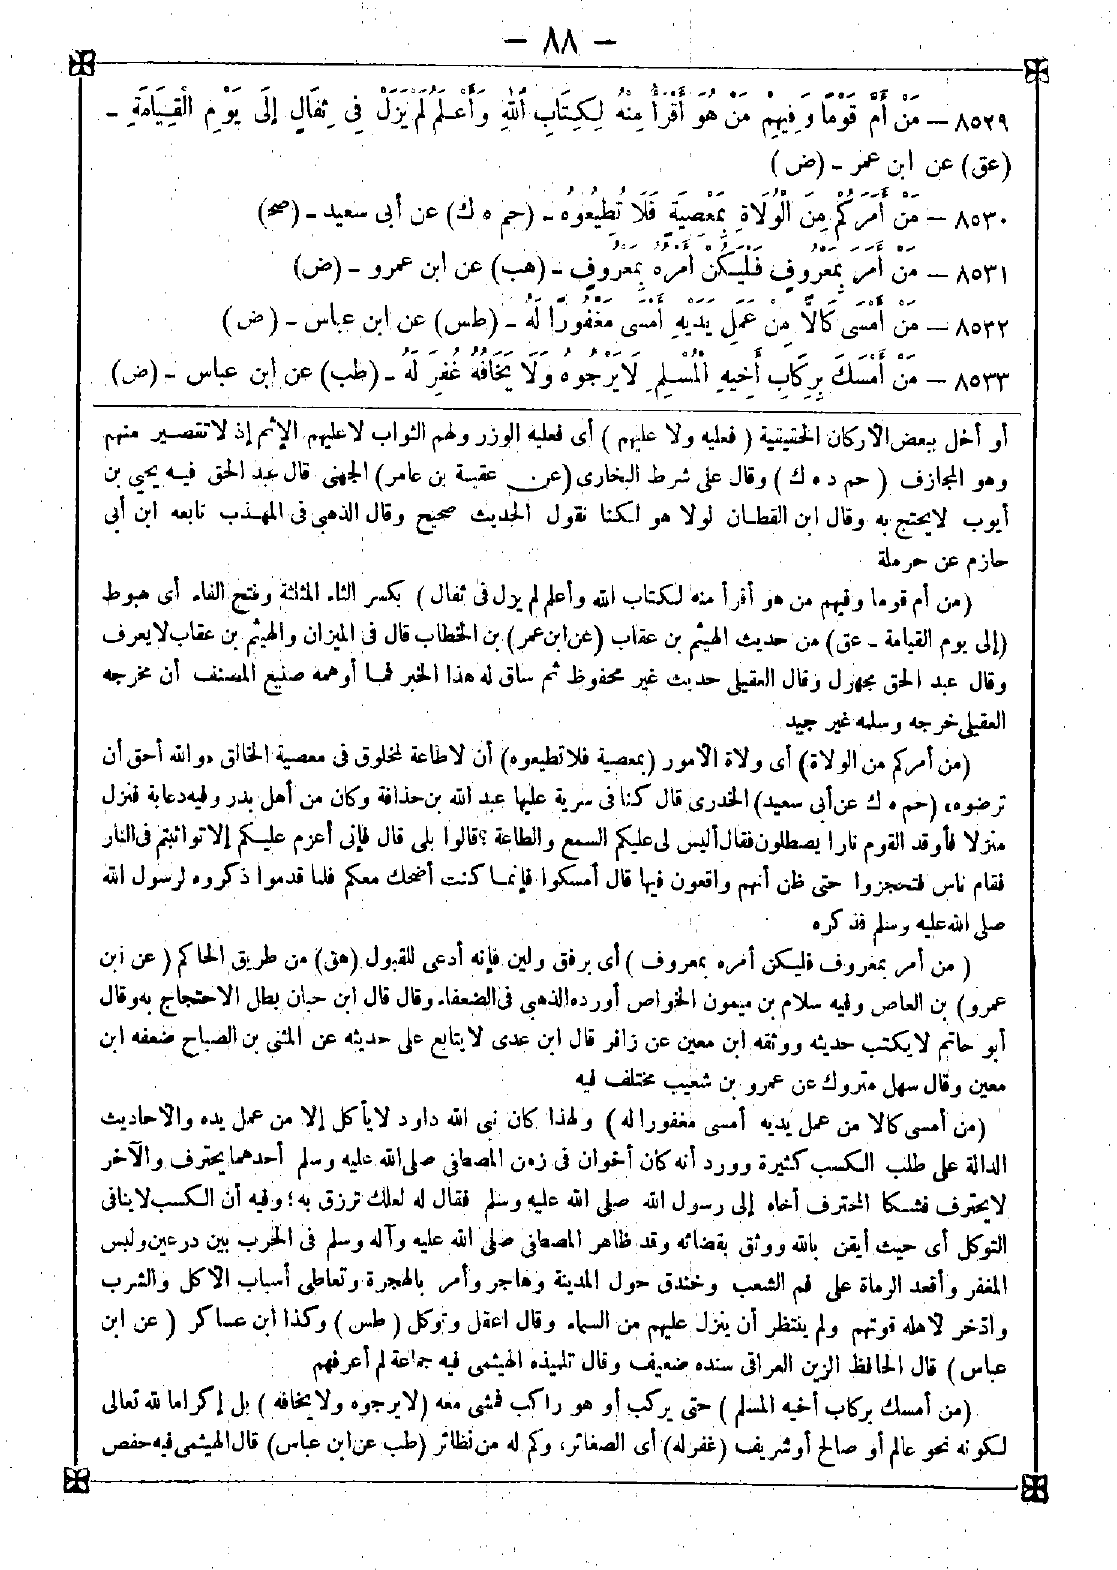 — ٨٨ —
٨٥٢٩ — مَنْ أَمَّ قَوْمًا وَفِيهِمْ مَنْ هُوَ أَقْرَأُ مِنْهُ لِكِتَابِ اللهِ وَأَعْلَمُ لَمْ يَزَلْ فِى ثِفَالٍ إِلَى يَوْمِ الْقِيَامَةِ -
(عق) عن ابن عمر - (ض)
٨٥٣٠ — مَنْ أَمَرَكُمْ مِنَ الْوُلَاةِ بِمَعْصِيَةٍ فَلَا تُطِيعُوهُ - (حم ه ك) عن أبى سعيد - (صح)
٨٥٣١ — مَنْ أَمَرَ بِمَعْرُوفٍ فَلْيَكُنْ أَمْرُهُ بِمَعْرُوفٍ - (هب) عن ابن عمرو - (ض)
٨٥٣٢ — مَنْ أَمْسَى كَالًّا مِنْ عَمَلِ يَدَيْهِ أَمْسَى مَغْفُورًا لَهُ - (طس) عن ابن عباس - (ض)
٨٥٣٣ — مَنْ أَمْسَكَ بِرِكَابِ أَخِيهِ الْمُسْلِمِ لَا يَرْجُوهُ وَلَا يَخَافُهُ غُفِرَ لَهُ - (طب) عن ابن عباس - (ض)
أو أخل ببعض الأركان الحقيقية (فعليه ولا عليهم) أى فعليه الوزر ولهم الثواب لا عليهم الإثم إذ لا تقصير منهم
وهو المجازف (حم د ه ك) وقال على شرط البخارى (عن عقبة بن عامر) الجهنى قال عبد الحق فيه يحيى بن
أيوب لا يحتج به وقال ابن القطان لولا هو لكنا نقول الحديث صحيح وقال الذهبى فى المهذب تابعه ابن أبى
حازم عن حرملة
(من أم قوما وفيهم من هو أقرأ منه لكتاب الله وأعلم لم يزل فى ثفال) بكسر الثاء المثلثة وفتح الفاء أى هبوط
(إلى يوم القيامة - عق) من حديث الهيثم بن عقاب (عن ابن عمر) بن الخطاب قال فى الميزان والهيثم بن عقاب لا يعرف
وقال عبد الحق مجهول وقال العقيلى حديث غير محفوظ ثم ساق له هذا الخبر فما أوهمه صنيع المصنف أن مخرجه
العقيلى خرجه وسلمه غير جيد
(من أمركم من الولاة) أى ولاة الأمور (بمعصية فلا تطيعوه) أن لا طاعة لمخلوق فى معصية الخالق «والله أحق أن
ترضوه» (حم ه ك عن أبى سعيد) الخدرى قال كنا فى سرية عليها عبد الله بن حذافة وكان من أهل بدر وفيه دعابة فنزل
منزلا فأوقد القوم نارا يصطلون فقال أليس لى عليكم السمع والطاعة ؟ قالوا بلى قال فإنى أعزم عليكم إلا تواثبتم فى النار
فقام ناس فتحجزوا حتى ظن أنهم واقعون فيها قال أمسكوا فإنما كنت أضحك معكم فلما قدموا ذكروه لرسول الله
صلى الله عليه وسلم فذكره
(من أمر بمعروف فليكن أمره بمعروف) أى برفق ولين فإنه أدعى للقبول (هق) من طريق الحاكم (عن ابن
عمرو) بن العاص وفيه سلام بن ميمون الخواص أورده الذهبى فى الضعفاء وقال قال ابن حبان بطل الاحتجاج به وقال
أبو حاتم لا يكتب حديثه ووثقه ابن معين عن زافر قال ابن عدى لا يتابع على حديثه عن المثنى بن الصباح ضعفه ابن
معين وقال سهل متروك عن عمرو بن شعيب مختلف فيه
(من أمسى كالا من عمل يديه أمسى مغفورا له) ولهذا كان نبى الله داود لا يأكل إلا من عمل يده والأحاديث
الدالة على طلب الكسب كثيرة وورد أنه كان أخوان فى زمن المصطفى صلى الله عليه وسلم أحدهما يحترف والآخر
لا يحترف فشكا المحترف أخاه إلى رسول الله صلى الله عليه وسلم فقال له لعلك ترزق به ؛ وفيه أن الكسب لا ينافى
التوكل أى حيث أيقن بالله ووثق بقضائه وقد ظاهر المصطفى صلى الله عليه وآله وسلم فى الحرب بين درعين ولبس
المغفر وأقعد الرماة على فم الشعب وخندق حول المدينة وهاجر وأمر بالهجرة وتعاطى أسباب الأكل والشرب
وادخر لأهله قوتهم ولم ينتظر أن ينزل عليهم من السماء وقال اعقل وتوكل (طس) وكذا ابن عساكر (عن ابن
عباس) قال الحافظ الزين العراقى سنده ضعيف وقال تلميذه الهيثمى فيه جماعة لم أعرفهم
(من أمسك بركاب أخيه المسلم) حتى يركب أو هو راكب فمشى معه (لا يرجوه ولا يخافه) بل إكراما لله تعالى
لكونه نحو عالم أو صالح أو شريف (غفر له) أى الصغائر، وكم له من نظائر (طب عن ابن عباس) قال الهيثمى فيه حفص